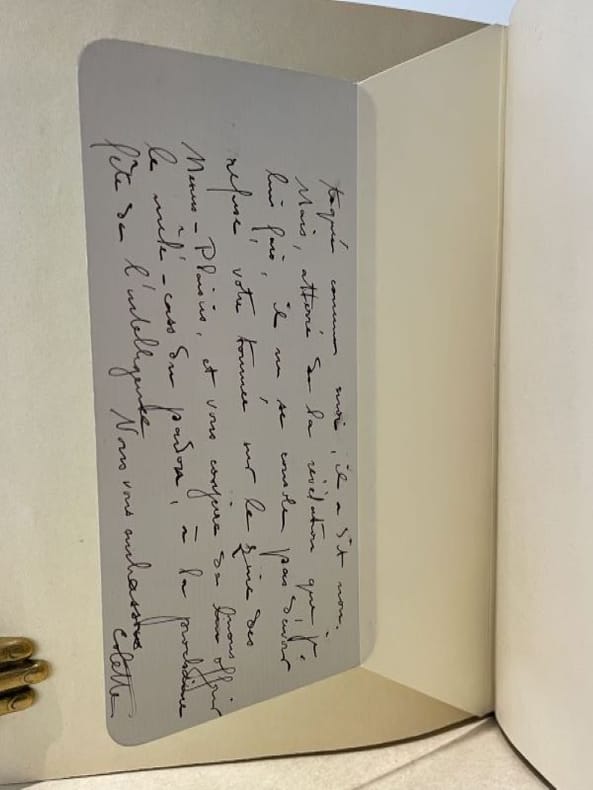 taqué comme moi, il a dit non.
Mais, atterré de la révélation que je
lui fais, il ne se console pas d'avoir
refusé votre tournée sur le zinc des
Menus-Plaisirs, et vous conjure de nous offrir
le verre-cass du pardon, à la prochaine
fête de l'intelligence. Nous vous embrassons
Colette